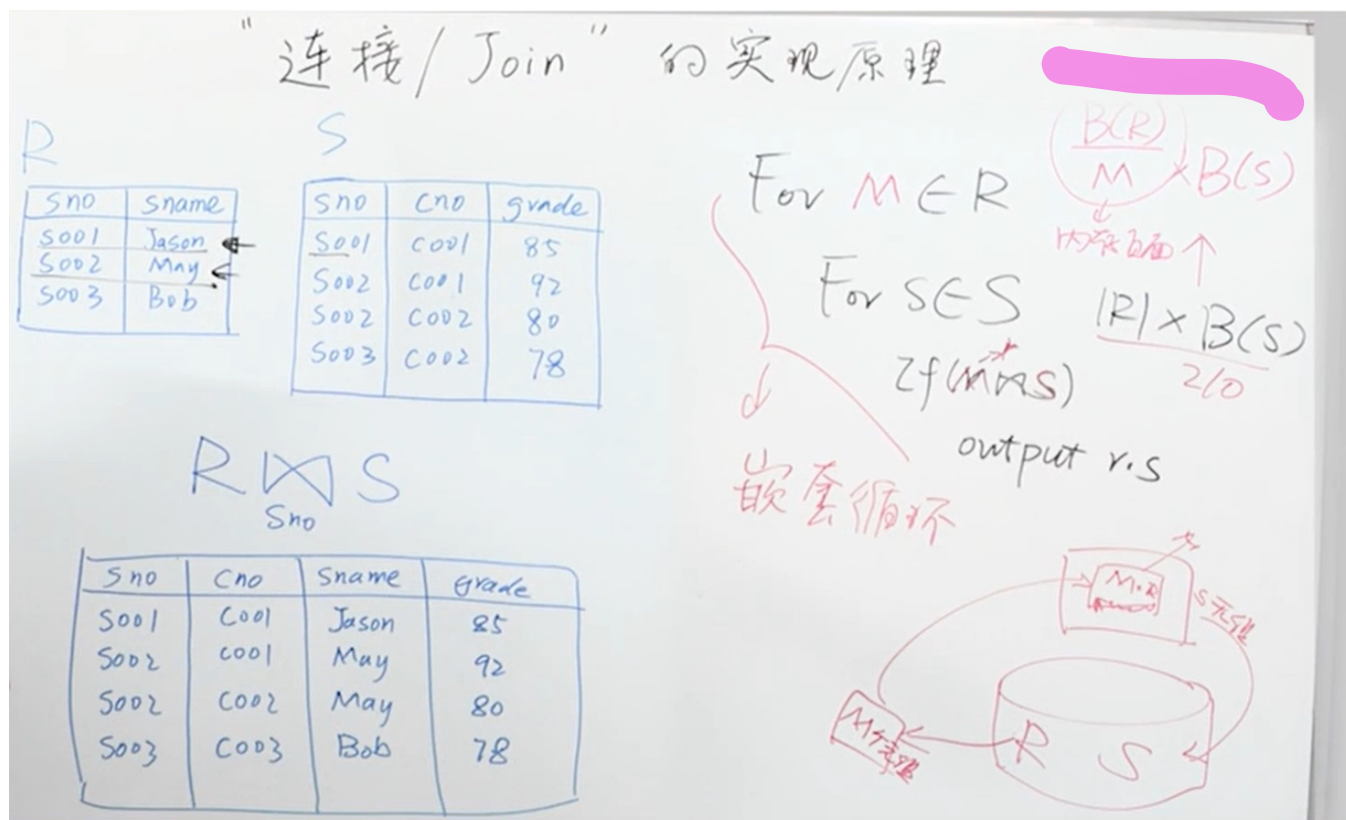 "连接/Join"的实现原理
R
sno sname
S001 Jason
S002 May
S003 Bob
S
sno cno grade
S001 C001 85
S002 C001 92
S002 C002 80
S003 C002 78
R⋈S
Sno
Sno Cno Sname grade
S001 C001 Jason 85
S002 C001 May 92
S002 C002 May 80
S003 C003 Bob 78
For M∈R
For S∈S
If(M⋈S)
output r.s
嵌套循环
B(R)/M × B(S)
内存页面
|R|×B(S)
I/O
M·R
S元组
M个元组
R S